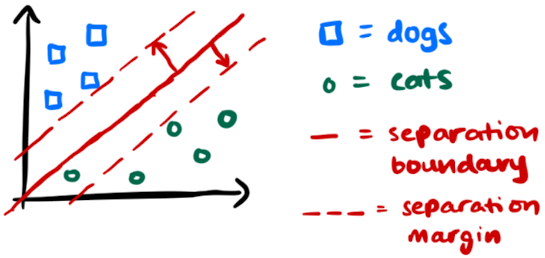 = dogs
= cats
= separation
boundary
= separation
margin